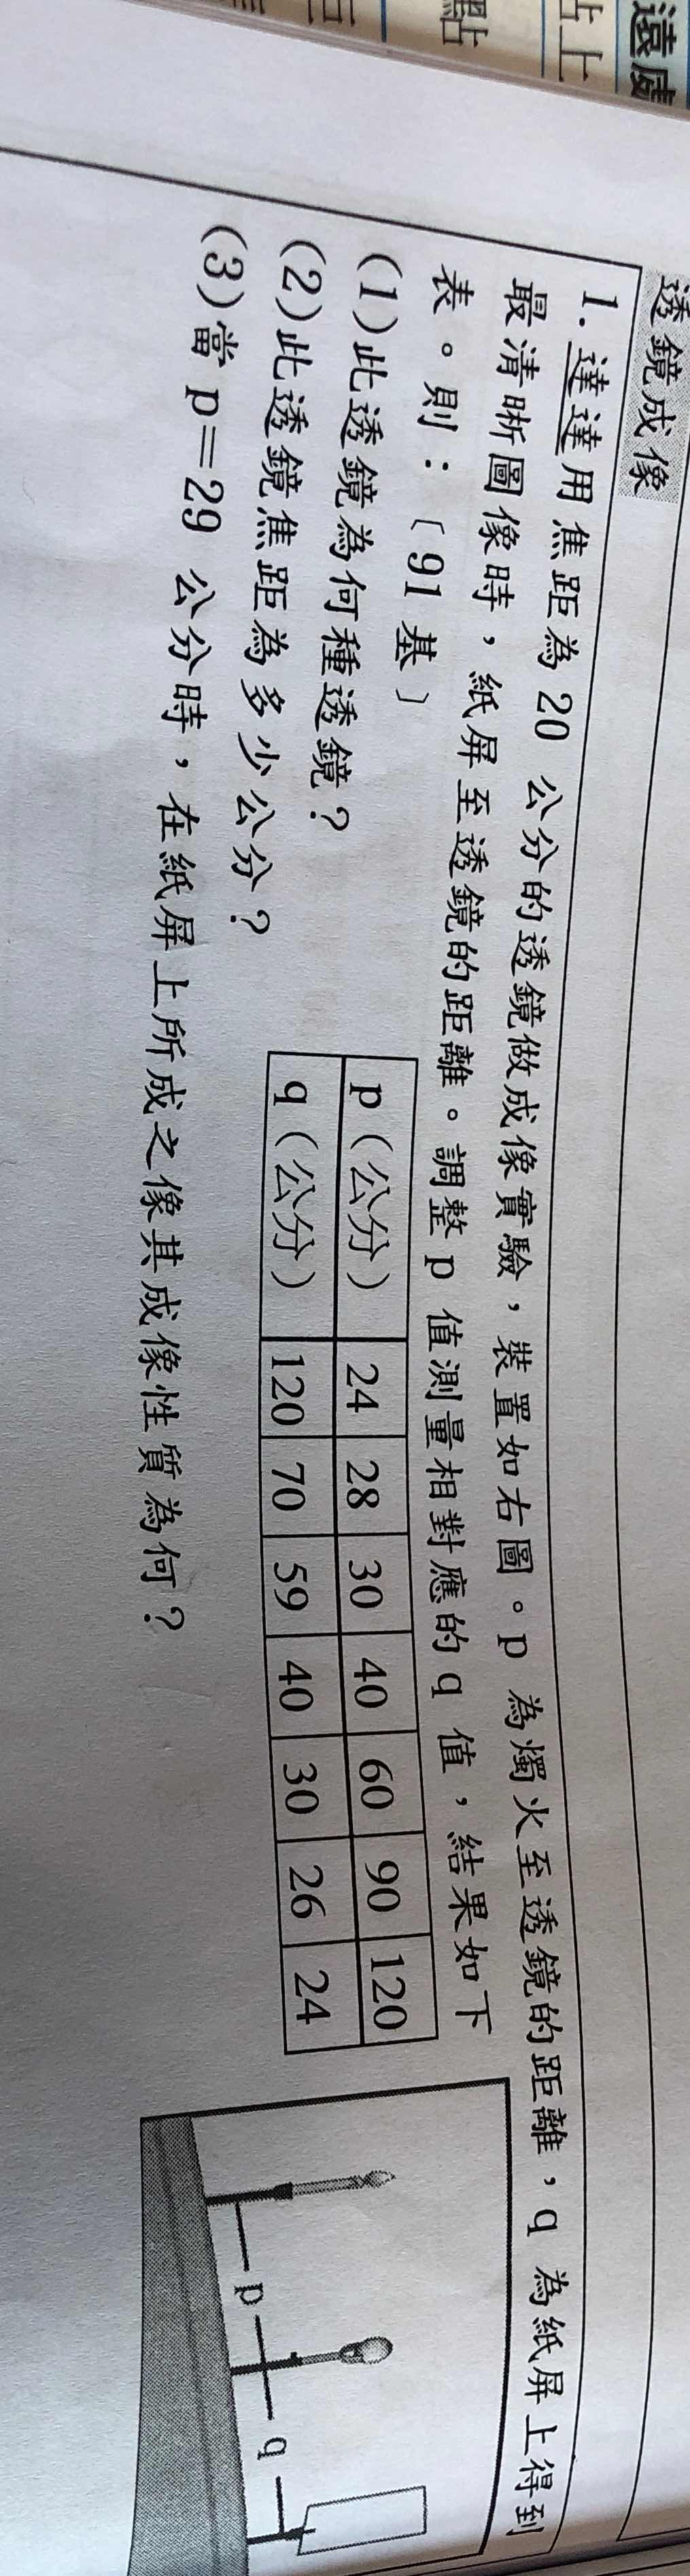 透鏡成像
1. 達達用焦距為 20 公分的透鏡做成像實驗，裝置如右圖。p 為燭火至透鏡的距離，q 為紙屏上得到
最清晰圖像時，紙屏至透鏡的距離。調整 p 值測量相對應的 q 值，結果如下
表。則：〔91 基〕
(1)此透鏡為何種透鏡？
(2)此透鏡焦距為多少公分？
(3)當 p＝29 公分時，在紙屏上所成之像其成像性質為何？
p（公分） 24 28 30 40 60 90 120
q（公分） 120 70 59 40 30 26 24
p q